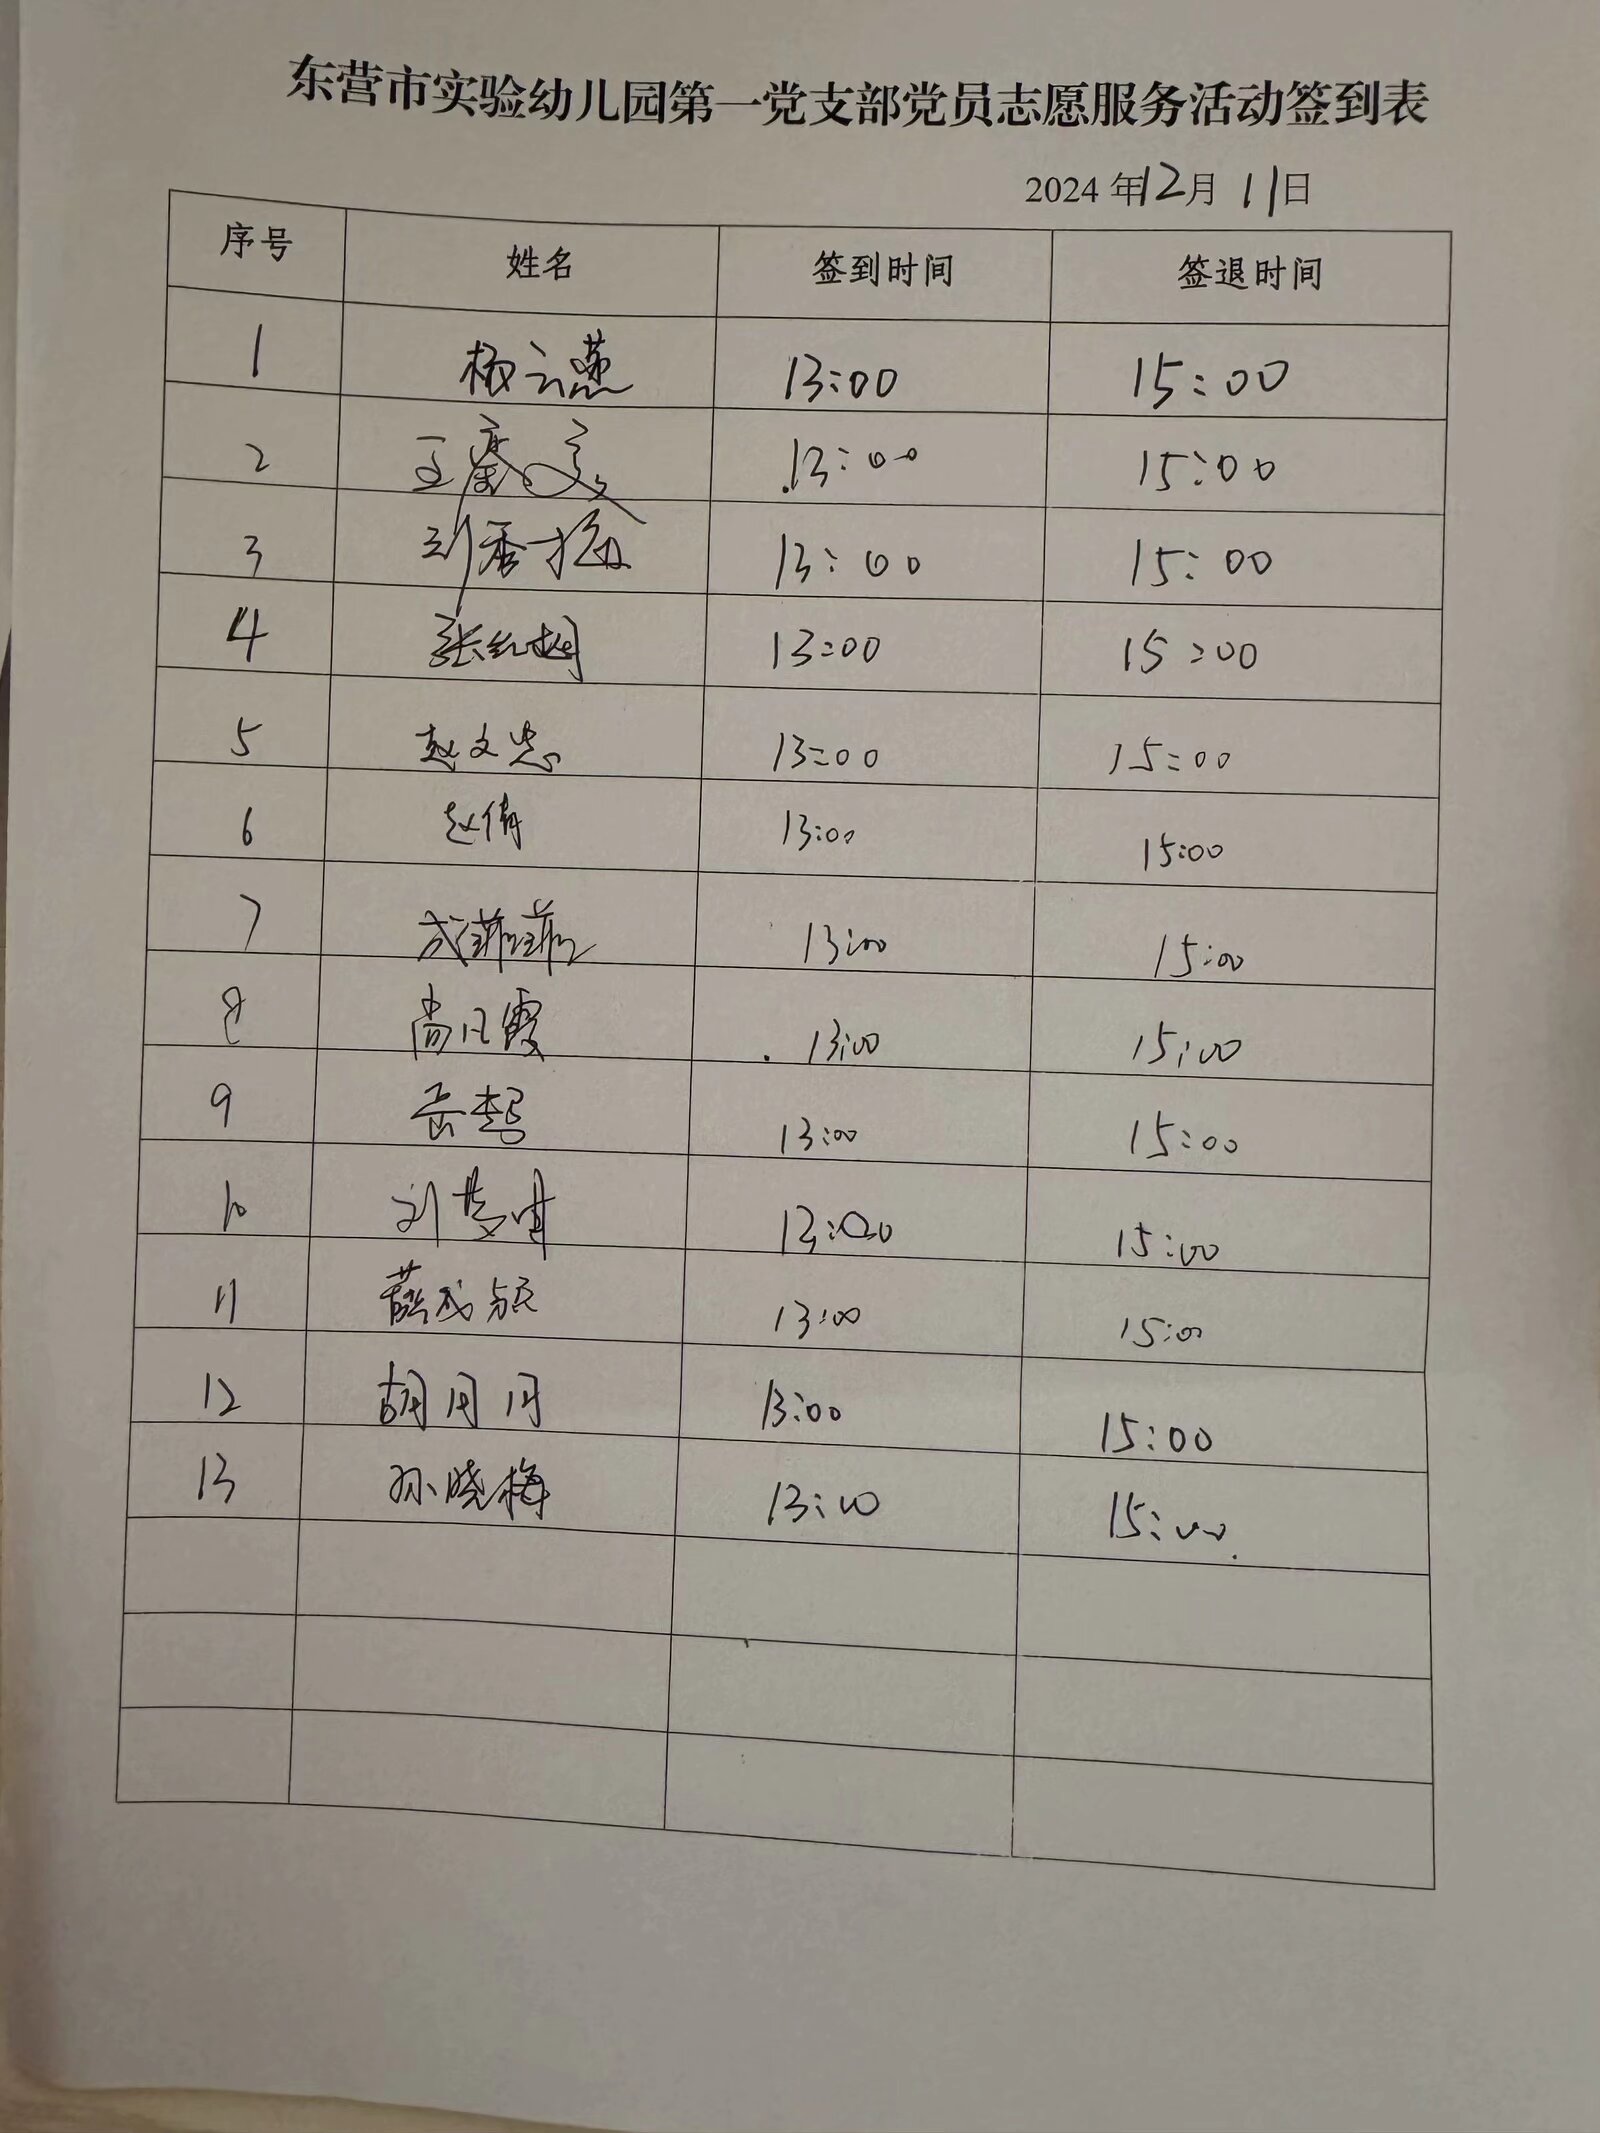 东营市实验幼儿园第一党支部党员志愿服务活动签到表
2024年12月11日
序号 姓名 签到时间 签退时间
1 杨云燕 13:00 15:00
2 王 13:00 15:00
3 刘秀梅 13:00 15:00
4 张红 13:00 15:00
5 赵文忠 13:00 15:00
6 赵倩 13:00 15:00
7 成菲菲 13:00 15:00
8 尚凡霞 13:00 15:00
9 岳 13:00 15:00
10 刘梦 13:00 15:00
11 薛成 13:00 15:00
12 胡月月 13:00 15:00
13 孙晓梅 13:00 15:00